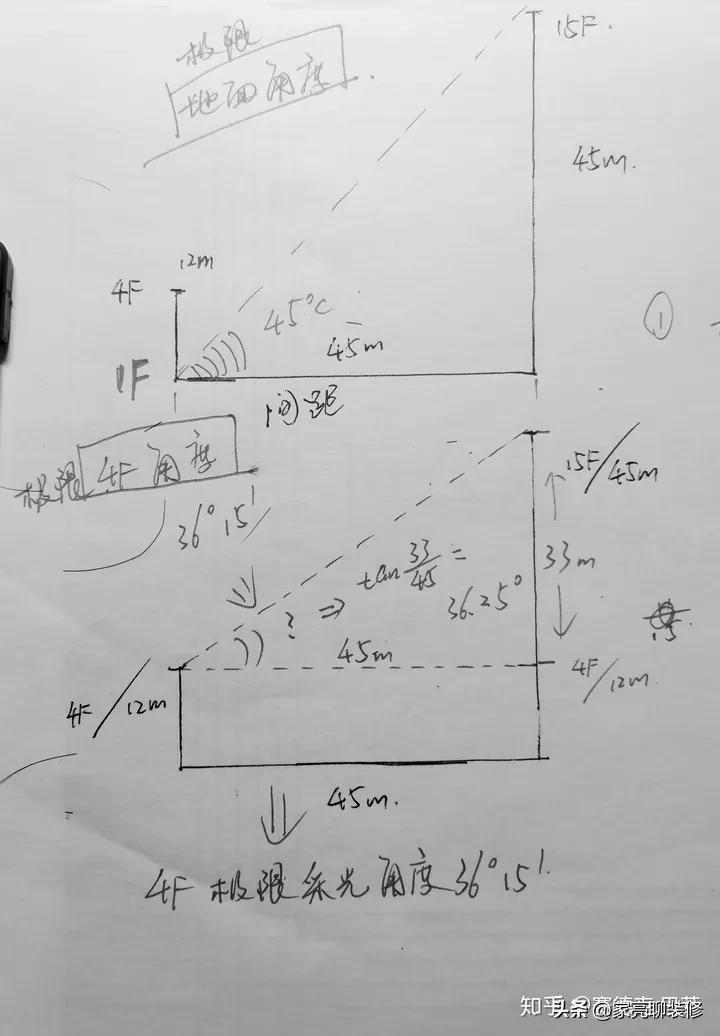 极限
地面角度
15F.
45m.
12m
4F
45°C
45m
1F
①
间距
极限 4F角度
36°15′
15F/45m
tan 33/45 =
36.25°
? ⇒
33m
45m
4F/12m
4F/12m
45m.
4F 极限采光角度36°15′.
知乎
头条 @家亮聊装修